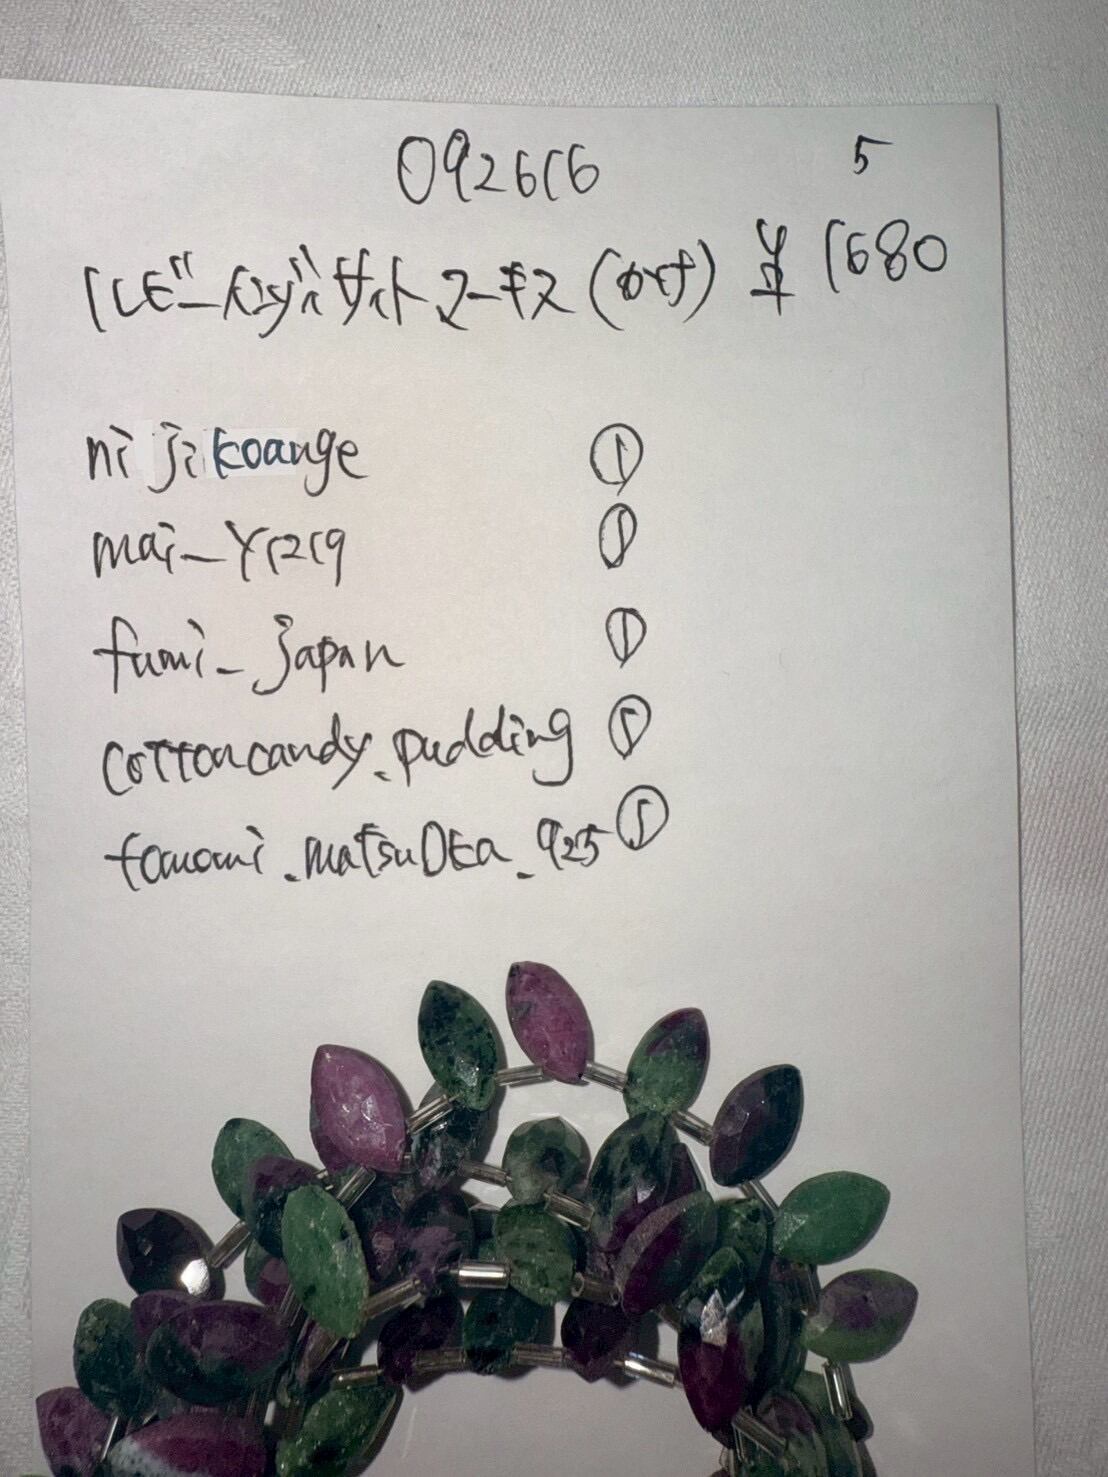 092616 5
ルビーインゾイサイトマーキス(かけ) ¥1680
nijikoange ①
mai_y1219 ①
fumi_japan ①
cottoncandy.pudding ①
tomomi.matsuoka.925 ①